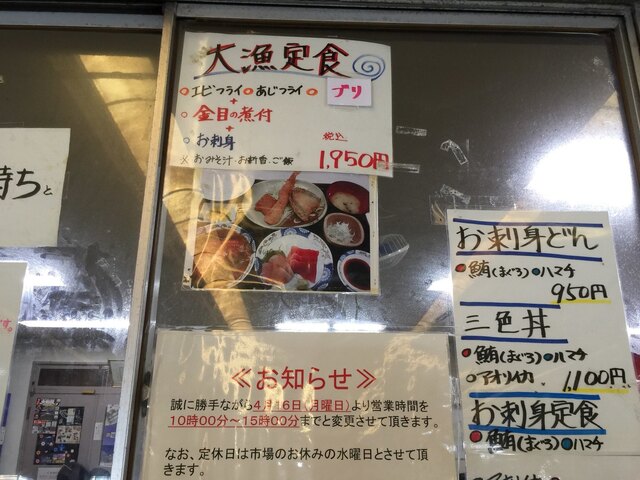 大漁定食
○エビフライ○あじフライ○ブリ
+
○金目の煮付
+
○お刺身
税込
※おみそ汁・お新香・ご飯 1,950円
待ちと
す。
お刺身どん
●鮪(まぐろ)●ハマチ
950円
三色丼
●鮪(まぐろ)○ハマチ
○アオリイカ 1,100円
お刺身定食
●鮪(まぐろ)●ハマチ
≪お知らせ≫
誠に勝手ながら4月16日(月曜日)より営業時間を
10時00分～15時00分までと変更させて頂きます。
なお、定休日は市場のお休みの水曜日とさせて頂
きます。